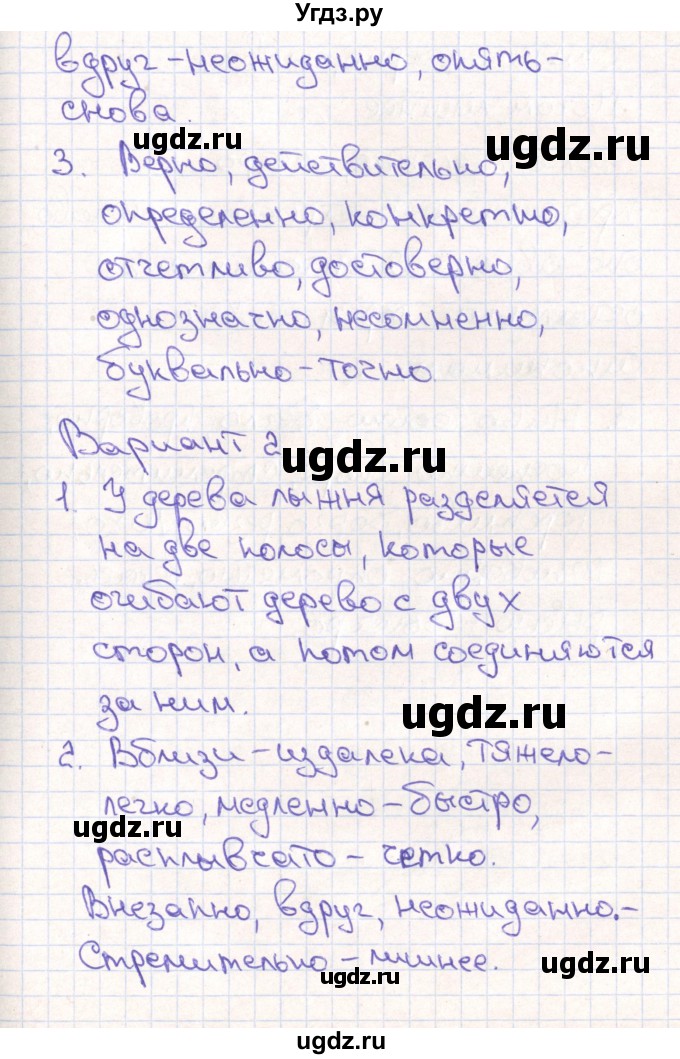 Угдз.ру
вдруг - неожиданно, опять -
снова.
ugdz.ru
ugdz.ru
3. Верно, действительно,
определенно, конкретно,
отчетливо, достоверно,
однозначно, несомненно,
буквально - точно.
Вариант 2
ugdz.ru
1. У дерева лыжня разделяется
на две полосы, которые
огибают дерево с двух
сторон, а потом соединяются
за ним.
ugdz.ru
2. Вблизи - издалека, тяжело -
легко, медленно - быстро,
ugdz.ru
расплывчато - четко.
Внезапно, вдруг, неожиданно. -
Стремительно -
ugdz.ru
ugdz.ru
ugdz.ru